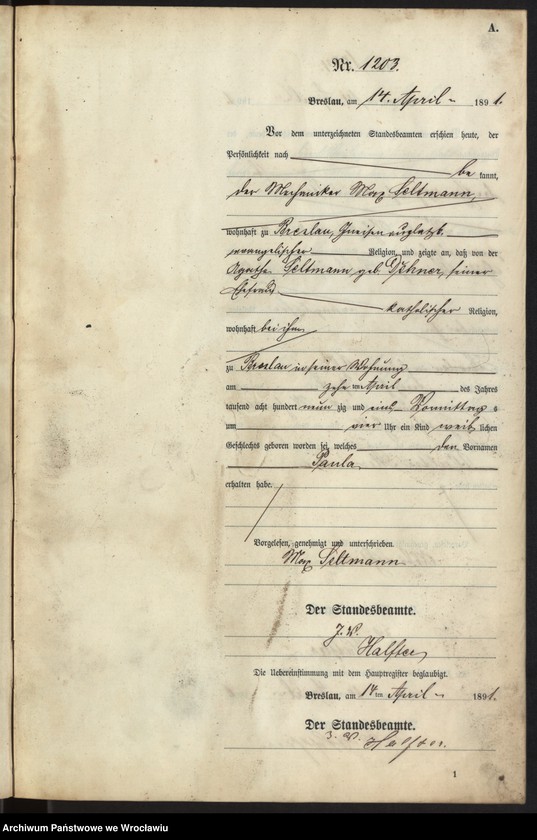 A.
Nr. 1203.
Breslau, am 14. April 1891.
Vor dem unterzeichneten Standesbeamten erschien heute, der
Persönlichkeit nach
be kannt,
der Mechaniker Max Seltmann,
wohnhaft zu Breslau, Gneisenauplatz
evangelischer Religion, und zeigte an, daß von der
Agathe Seltmann geb. seiner
Ehefrau
katholischer Religion,
wohnhaft bei ihm
zu Breslau in seiner Wohnung
am zehn ten April des Jahres
tausend acht hundert neun zig und eins Vormittags
um vier Uhr ein Kind weib lichen
Geschlechts geboren worden sei, welches den Vornamen
Paula
erhalten habe.
Vorgelesen, genehmigt und unterschrieben.
Max Seltmann
Der Standesbeamte.
J. V.
Halfter
Die Uebereinstimmung mit dem Hauptregister beglaubigt.
Breslau, am 14 ten April 1891.
Der Standesbeamte.
J. V. Halfter.
1
Archiwum Państwowe we Wrocławiu